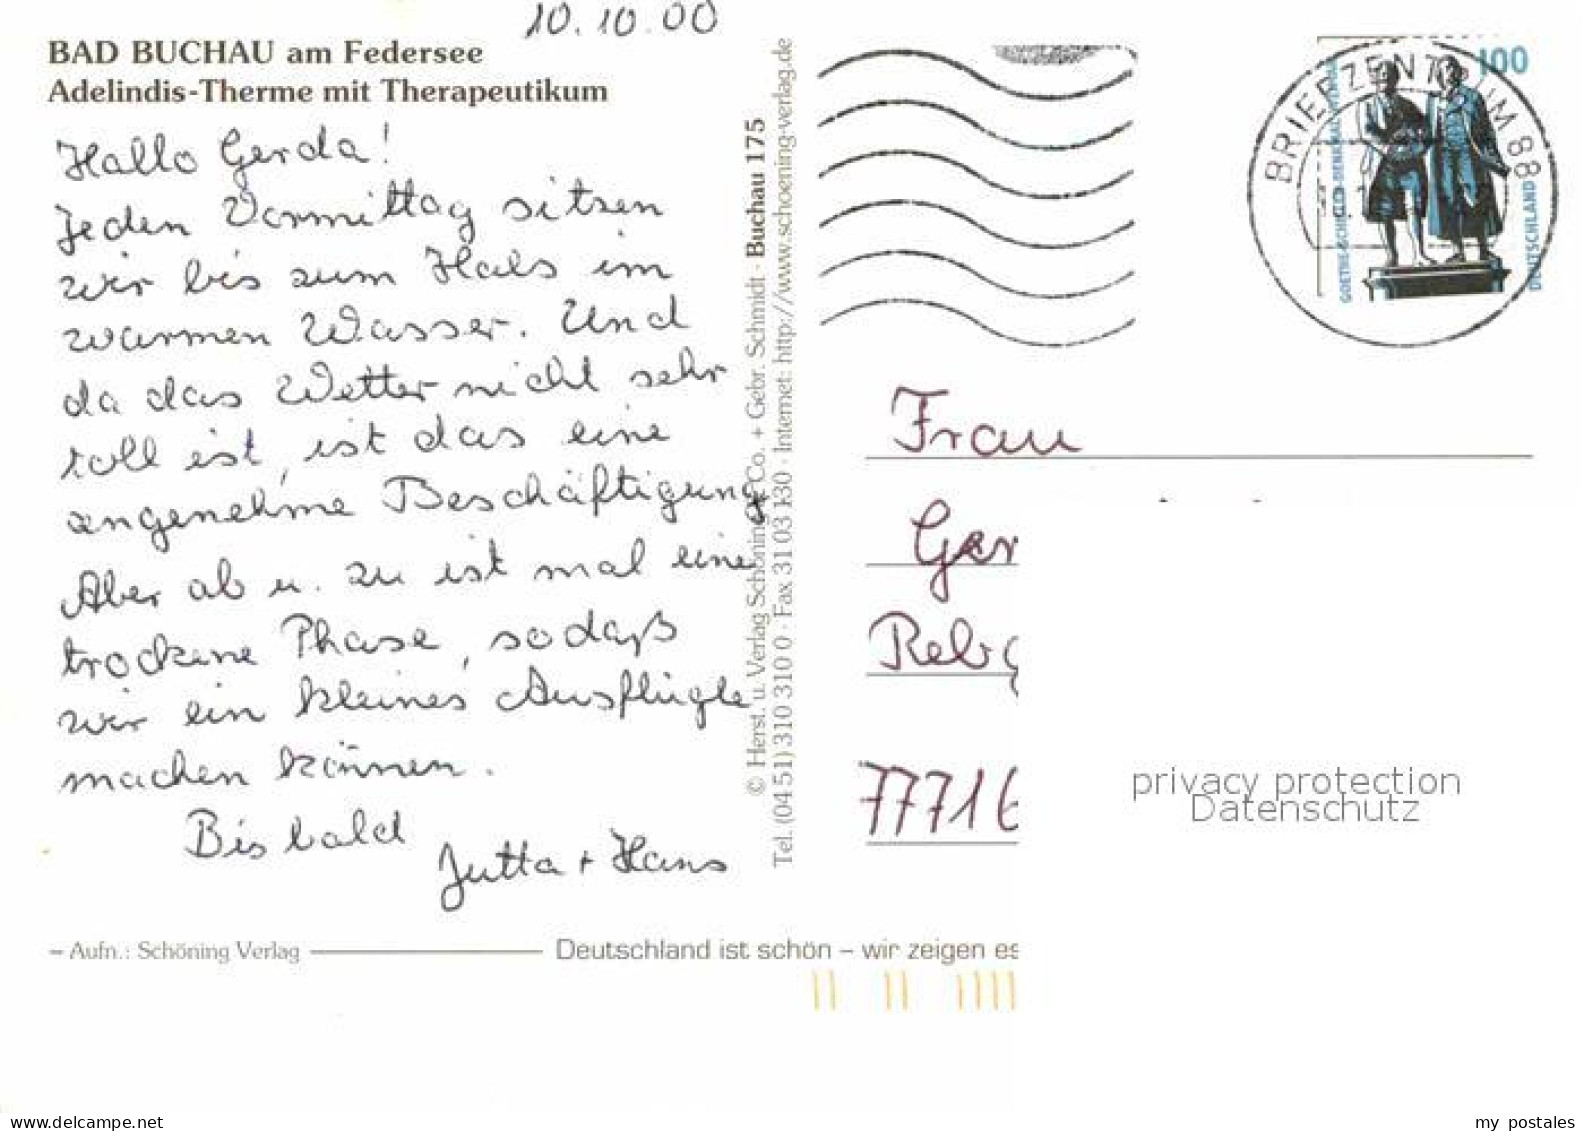 10.10.00
BAD BUCHAU am Federsee
Adelindis-Therme mit Therapeutikum
Hallo Gerda!
Jeden Vormittag sitzen
wir bis zum Hals im
warmen Wasser. Und
da das Wetter nicht sehr
toll ist, ist das eine
angenehme Beschäftigung
Aber ab u. zu ist mal eine
trockene Phase, sodaß
wir ein kleines Ausflügle
machen können.
Bis bald
Jutta + Hans
– Aufn.: Schöning Verlag
Deutschland ist schön – wir zeigen es
© Herst. u. Verlag Schöning & Co. + Gebr. Schmidt · Buchau 175
Tel. (04 51) 310 310 0 · Fax 31 03 130 · Internet: http://www.schoening-verlag.de
BRIEFZENTRUM 88
100
GOETHE-SCHILLER-DENKMAL WEIMAR
DEUTSCHLAND
Frau
Ger
Reb
77716
privacy protection
Datenschutz
www.delcampe.net
my_postales